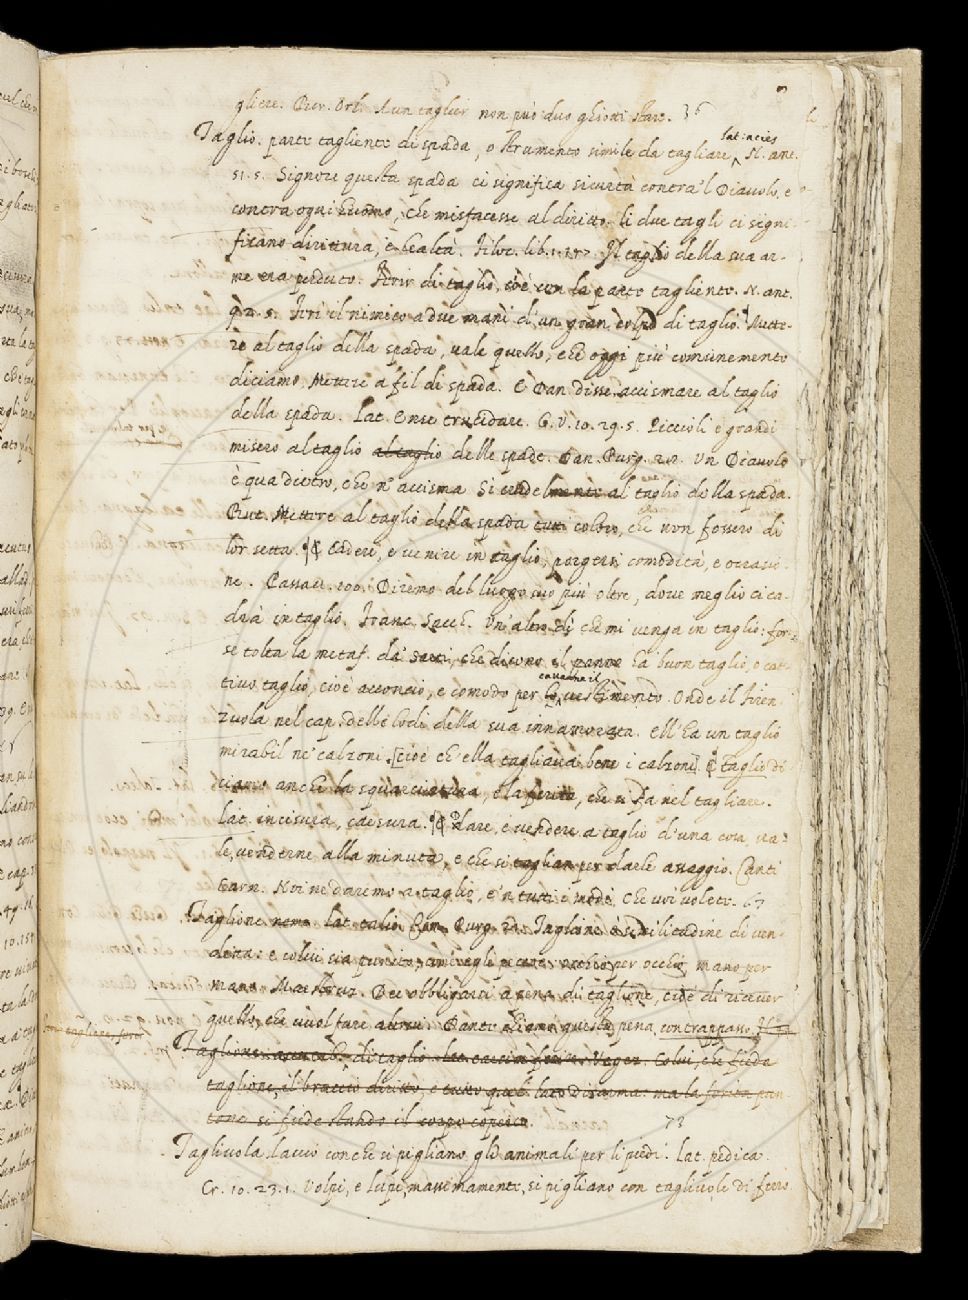 gliere. Prov. Ord. A un taglier non può duo ghiotti stare. 36
Taglio. parte tagliente di spada, o strumento simile da tagliare lat: acies N. ant.
51. 5. Signore questa spada ci significa sicurtà contra 'l Diavolo, e
contra ogni huomo, che misfacesse al diritto. li due tagli ci signi-
ficano dirittura, e lealtà. Filoc. lib. Il taglio della sua ar-
me era perduto. Ferir di taglio, cioè con la parte tagliente. N. ant.
5. Ferì il nimico a due mani d'un gran colpo di taglio. Mette-
re al taglio della spada, vale quello, che oggi più comunemente
diciamo. Mettere a fil di spada. E Dan. disse. accismare al taglio
della spada. Lat. Ense trucidare. G. V. 10. 29. 5. Piccioli e grandi
misero al taglio al taglio delle spade. Dan. Purg. Un Diavolo
è qua dietro, che n'accisma Si crudelmente al taglio della spada.
But. Mettere al taglio della spada tutti coloro, che non fossero di
lor setta. Cadere, e venire in taglio, porgersi comodità, e occasio-
ne. Passav. Diremo del luogo suo più oltre, dove meglio ci ca-
drà in taglio. Franc. Sacch. Un'altro dì che mi venga in taglio: for-
se tolta la metaf. da' sarti, che dicono il panno ha buon taglio, o cat-
tivo taglio, cioè acconcio, e comodo per cavarne il lo vestimento. Onde il Firen-
zuola nel cap. delle lodi della sua innamorata. Ell'ha un taglio
mirabil ne' calzoni. [cioè ch'ella tagliava bene i calzoni] taglio di-
ciamo anche la squarciatura, e la ferita, che si fa nel tagliare.
lat. incisura, caesura. Dare, e vendere a taglio d'una cosa, va-
le, venderne alla minuta, e che si taglian per darle a saggio. Canti
Carn. Noi ne daremo a taglio, e'n tutti i modi, Che voi volete. 67
Taglione lat. talio. Com. Purg. Taglione è similitudine di ven-
detta: e colui sia punito, occhio per occhio, mano per
mano. Maestruz. Dee obbligarsi a pena di taglione, cioè di ricever
quello, che vuol fare altrui. Dante chiama questa pena contrappasso.
Taglione. di taglio. lat. caesim ferire. Veget. Colui, che fieda
taglione, il braccio diritto, e tutto quel lato disarma. ma la ferita pun-
tone si fiede stando il corpo coperto. 73
Tagliuola. laccio con che si pigliano gli animali per li piedi. lat. pedica.
Cr. 10. 23. 1. Volpi, e lupi massimamente, si pigliano con tagliuole di ferro.